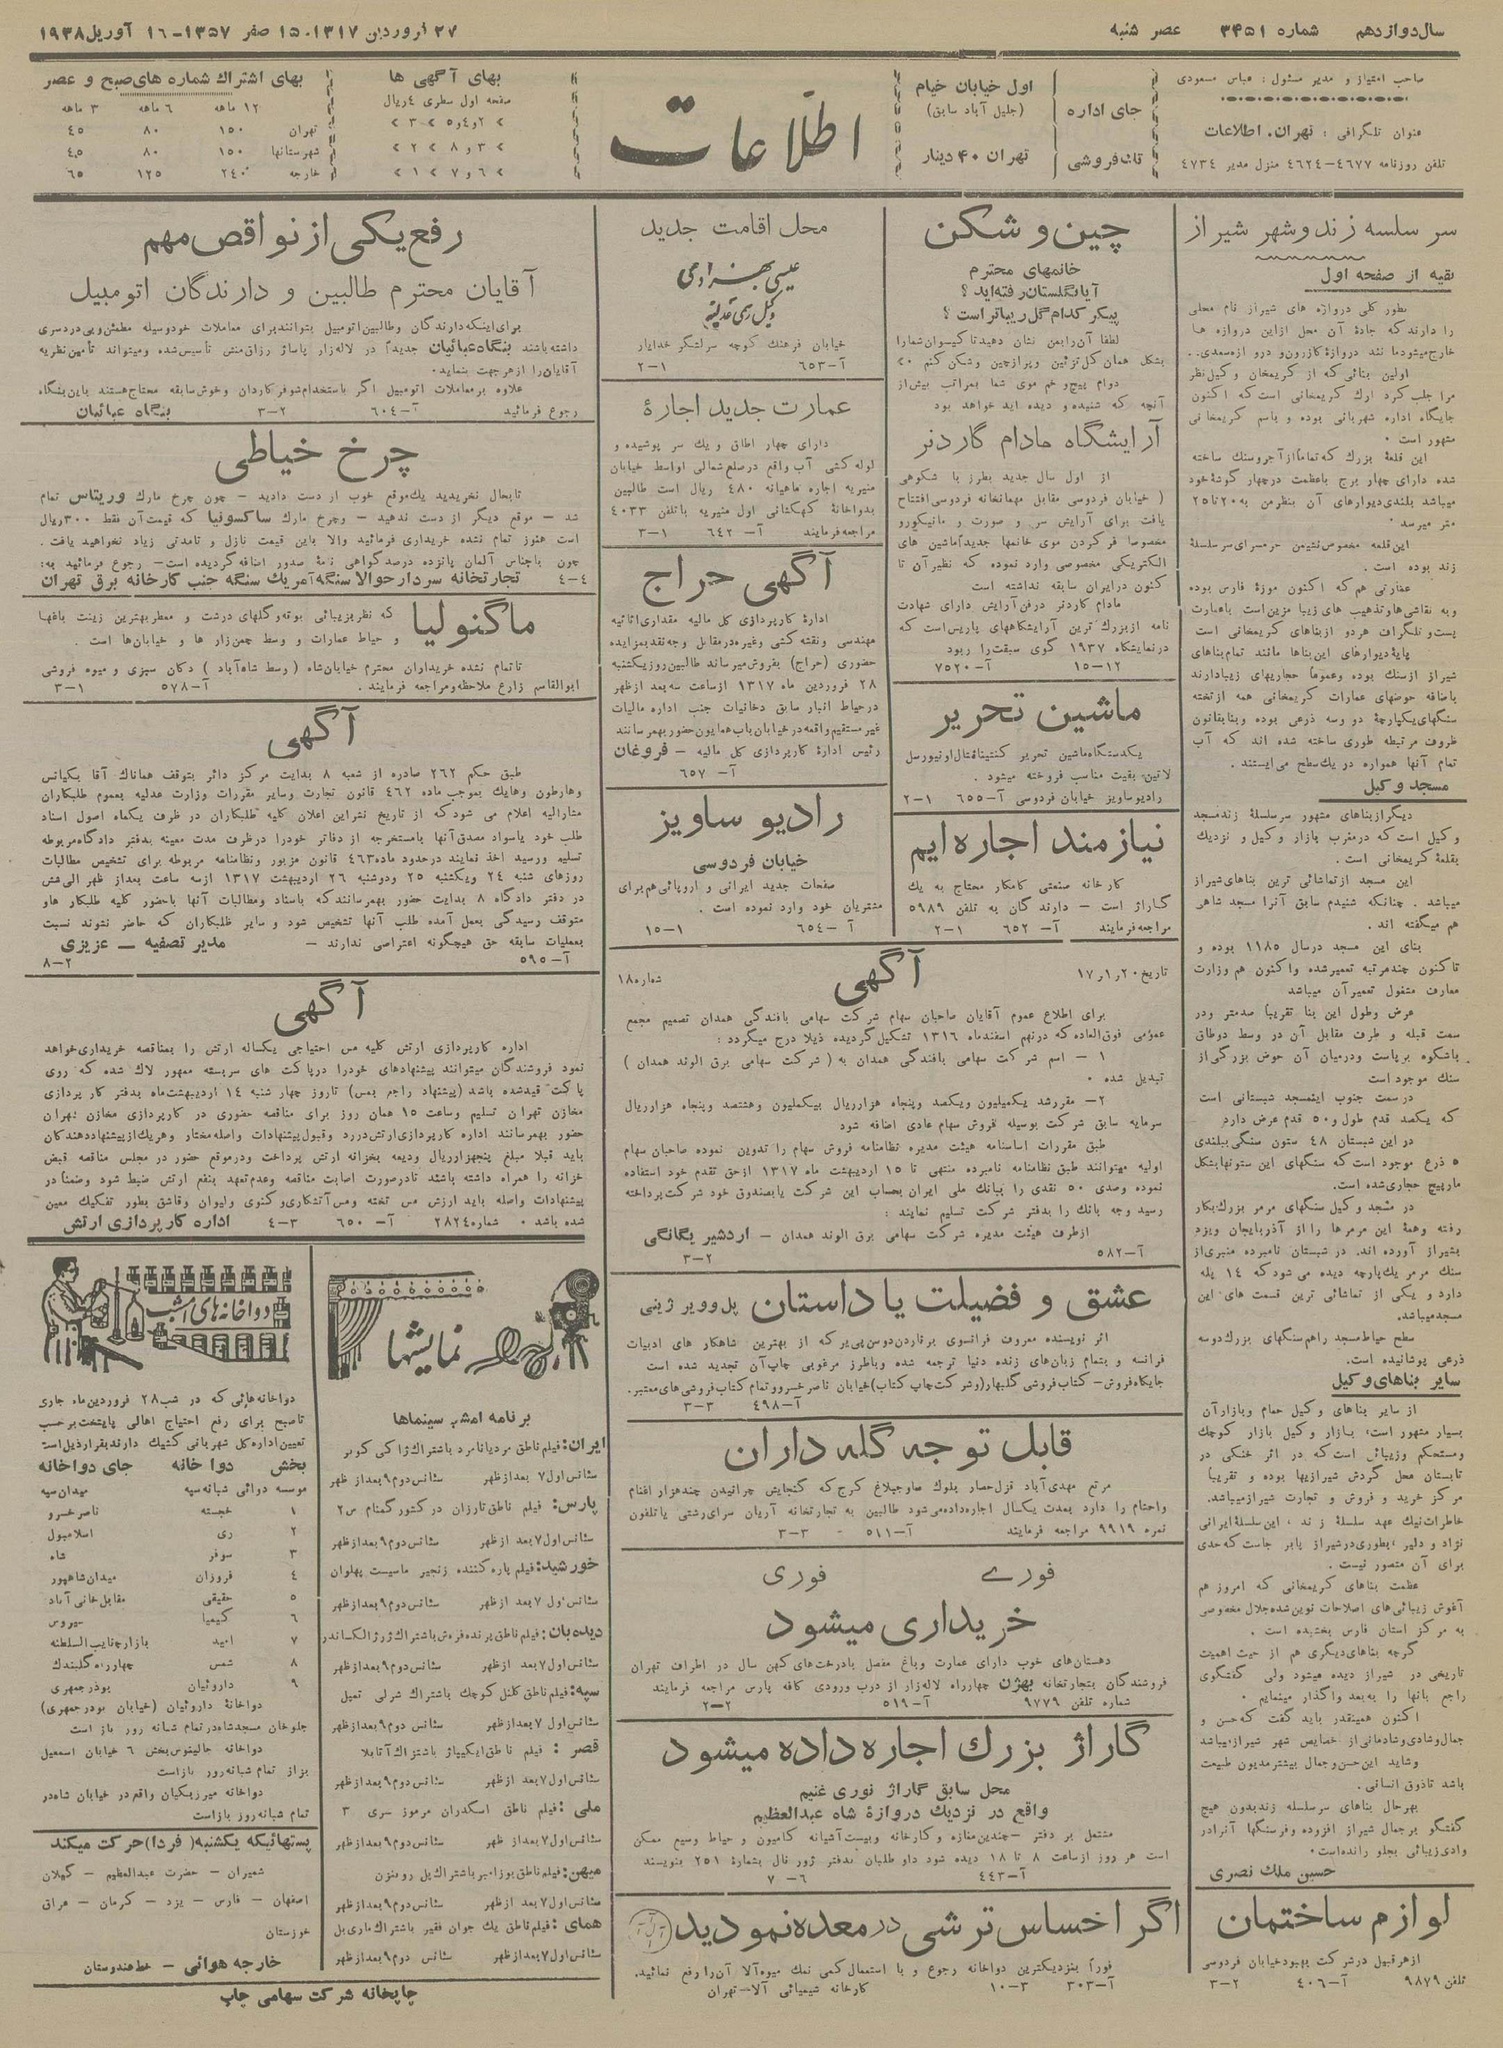 سال دوازدهم شماره ۳۴۵۱ عصر شنبه
۲۷ فروردین ۱۳۱۷ ـ ۱۵ صفر ۱۳۵۷ ـ ۱٦ آوریل ۱۹۳۸
صاحب امتیاز و مدیر مسئول : عباس مسعودی
عنوان تلگرافی : تهران، اطلاعات
تلفن روزنامه ٤٦۷۷ـ٤٦۲٤ منزل مدیر ٤۷۳٤
جای اداره
اول خیابان خیام
(جلیل آباد سابق)
تک فروشی
تهران ۴۰ دینار
اطلاعات
بهای آگهی ها
صفحه اول سطری ٤ ریال
بهای اشتراك شماره های صبح و عصر
۱۲ ماهه ٦ ماهه ۳ ماهه
تهران ۱۵۰ ۸۰ ٤۵
شهرستانها ۱۵۰ ۸۰ ٤۵
خارجه ۲٤۰ ۱۲۵ ٦۵
سر سلسه زند و شهر شیراز
بقیه از صفحه اول
بطور کلی دروازه های شیراز نام محلی
را دارند که جادۀ آن محل از این دروازه ها
خارج میشود مانند دروازۀ کازرون و دروازه سعدی..
اولین بنائی که از کریمخان وکیل نظر
مرا جلب کرد ارك کریمخانی است که اکنون
جایگاه اداره شهربانی بوده و باسم کریمخانی
مشهور است .
این قلعۀ بزرك که تماماً از آجر و سنك ساخته
شده دارای چهار برج باعظمت در چهار گوشۀ خود
میباشد بلندی دیوارهای آن بنظر من به ۲۰ تا ۲۵
متر میرسد .
این قلعه مخصوص نشیمن حرمسرای سر سلسلۀ
زند بوده است .
عمارتی هم که اکنون موزۀ فارس بوده
و به نقاشی ها و تذهیب های زیبا مزین است با عمارت
پست و تلگراف هر دو از بناهای کریمخانی است
پایۀ دیوارهای این بناها مانند تمام بناهای
شیراز از سنك بوده و عموماً حجاریهای زیبا دارند
باضافه حوضهای عمارات کریمخانی همه از تخته
سنگهای یکپارچۀ دو وسه ذرعی بوده و بنا بقانون
ظروف مرتبطه طوری ساخته شده اند که آب
تمام آنها همواره در یك سطح می ایستند .
مسجد وکیل
دیگر از بناهای مشهور سر سلسلۀ زند مسجد
وکیل است که در مغرب بازار وکیل و نزدیك
بقلعۀ کریمخانی است .
این مسجد از تماشائی ترین بناهای شیراز
میباشد . چنانکه شنیدم سابق آنرا مسجد شاهی
هم میگفته اند .
بنای این مسجد در سال ۱۱۸۵ بوده و
تا کنون چند مرتبه تعمیر شده و اکنون هم وزارت
معارف مشغول تعمیر آن میباشد
عرض و طول این بنا تقریباً صد متر و در
سمت قبله و طرف مقابل آن در وسط دو طاق
باشکوه برپاست و در میان آن حوض بزرگی از
سنك موجود است
در سمت جنوب این مسجد شبستانی است
که یکصد قدم طول و ۵۰ قدم عرض دارد
در این شبستان ٤۸ ستون سنگی ببلندی
۵ ذرع موجود است که سنگهای این ستونها بشکل
مارپیچ حجاری شده است.
در مسجد وکیل سنگهای مرمر بزرك بکار
رفته و همۀ این مرمرها را از آذربایجان و یزد
بشیراز آورده اند. در شبستان نامبرده منبری از
سنك مرمر یك پارچه دیده می شود که ۱٤ پله
دارد و یکی از تماشائی ترین قسمت های این
مسجد میباشد.
سطح حیاط مسجد را هم سنگهای بزرك دو سه
ذرعی پوشانیده است.
سایر بناهای وکیل
از سایر بناهای وکیل حمام و بازار آن
بسیار مشهور است، بازار وکیل بازار کوچك
و مستحکم و زیبائی است که در اثر خنکی در
تابستان محل گردش شیرازیها بوده و تقریباً
مرکز خرید و فروش و تجارت شیراز میباشد.
خاطرات نیك عهد سلسلۀ زند ، این سلسلۀ ایرانی
نژاد و دلیر ، بطوری در شیراز پابر جاست که حدی
برای آن متصور نیست .
عظمت بناهای کریمخانی که امروز هم
آغوش زیبائی های اصلاحات نوین شده جلال مخصوصی
به مرکز استان فارس بخشیده است .
گرچه بناهای دیگری هم از حیث اهمیت
تاریخی در شیراز دیده میشود ولی گفتگوی
راجع بآنها را به بعد واگذار مینمایم .
اکنون همینقدر باید گفت که حسن و
جمال و شادی و شادمانی از خصایص شهر شیراز میباشد
و شاید این حسن و جمال بیشتر مدیون طبیعت
باشد تا ذوق انسانی .
بهر حال بناهای سر سلسله زند بدون هیچ
گفتگو بر جمال شیراز افزوده و فرسنگها آنرا در
وادی زیبائی بجلو رانده است .
حسین ملك نصری
لوازم ساختمان
از هر قبیل در شرکت بهبود خیابان فردوسی
تلفن ۹۸۷۹ آ-٤۰٦ ۲-۳
چین و شکن
خانمهای محترم
آیا بگلستان رفته اید ؟
پیکر کدام گل زیباتر است ؟
لطفاً آنرا بمن نشان دهید تا گیسوان شما را
بشکل همان گل تزئین و پر از چین و شکن کنم .»
دوام پیچ و خم موی شما بمراتب بیش از
آنچه که شنیده و دیده اید خواهد بود
آرایشگاه مادام گاردنر
از اول سال جدید بطرز با شکوهی
( خیابان فردوسی مقابل مهمانخانه فردوسی افتتاح
یافت برای آرایش سر و صورت و مانیکور و
مخصوصاً فر کردن موی خانمها جدیداً ماشین های
الکتریکی مخصوصی وارد نموده که نظیر آن تا
کنون در ایران سابقه نداشته است
مادام گاردنر در فن آرایش دارای شهادت
نامه از بزرك ترین آرایشگاههای پاریس است که
در نمایشگاه ۱۹۳۷ گوی سبقت را ربود
۱۲-۱۵ آ-۷۵۲۰
ماشین تحریر
یکدستگاه ماشین تحریر کنتیننتال و اونیورسل
لاتین بقیمت مناسب فروخته میشود .
رادیو ساویز خیابان فردوسی آ-٦۵۵ ۱-۲
نیازمند اجاره ایم
کارخانه صنعتی کامکار محتاج به یك
گاراژ است ـ دارندگان به تلفن ۵۹۸۹
مراجعه فرمایند آ- ٦۵۲ ۱-۲
محل اقامت جدید
عیسی بهزادی
وکیل رسمی عدلیه
خیابان فرهنك کوچه سرلشگر خدایار
آ-٦۵۳ ۱-۲
عمارت جدید اجارۀ
دارای چهار اطاق و یك سر پوشیده و
لوله کشی آب واقع در ضلع شمالی اواسط خیابان
منیریه اجاره ماهیانه ٤۸۰ ریال است طالبین
بدواخانۀ کهکشانی اول منیریه یا تلفن ٤۰۳۳
مراجعه فرمایند آ- ٦٤۲ ۱-۳
آگهی حراج
ادارۀ کارپردازی کل مالیه مقداری اثاثیه
مهندسی و نقشه کشی و غیره در مقابل وجه نقد بمزایده
حضوری (حراج) بفروش میرساند طالبین روز یکشنبه
۲۸ فروردین ماه ۱۳۱۷ از ساعت سه بعد از ظهر
در حیاط انبار سابق دخانیات جنب اداره مالیات
غیر مستقیم واقعه در خیابان باب همایون حضور بهمرسانند
رئیس ادارۀ کارپردازی کل مالیه ـ فروغان
آ- ٦۵۷
رادیو ساویز
خیابان فردوسی
صفحات جدید ایرانی و اروپائی هم برای
مشتریان خود وارد نموده است .
آ -٦۵٤ ۱-۱۵
آگهی
تاریخ ۲۰ر۱ر۱۷ شماره ۱۸
برای اطلاع عموم آقایان صاحبان سهام شرکت سهامی بافندگی همدان تصمیم مجمع
عمومی فوق العاده که در نهم اسفند ماه ۱۳۱٦ تشکیل گردیده ذیلا درج میگردد :
۱ - اسم شرکت سهامی بافندگی همدان به ( شرکت سهامی برق الوند همدان )
تبدیل شده .
۲- مقرر شد یکمیلیون و یکصد و پنجاه هزار ریال بیکمیلیون و هشتصد و پنجاه هزار ریال
سرمایه سابق شرکت بوسیله فروش سهام عادی اضافه شود
طبق مقررات اساسنامه هیئت مدیره نظامنامه فروش سهام را تدوین نموده صاحبان سهام
اولیه میتوانند طبق نظامنامه نامبرده منتهی تا ۱۵ اردیبهشت ماه ۱۳۱۷ از حق تقدم خود استفاده
نموده و صدی ۵۰ نقدی را ببانك ملی ایران بحساب این شرکت یا بصندوق خود شرکت پرداخته
رسید وجه بانك را بدفتر شرکت تسلیم نمایند :
از طرف هیئت مدیره شرکت سهامی برق الوند همدان ـ اردشیر یگانگی
آ-۵۸۲ ۲-۳
عشق و فضیلت یا داستان پل و ویرژینی
اثر نویسنده معروف فرانسوی برناردن دوسن پی یر که از بهترین شاهکار های ادبیات
فرانسه و بتمام زبان های زنده دنیا ترجمه شده و با طرز مرغوبی چاپ آن تجدید شده است
جایگاه فروش ـ کتاب فروشی گلبهار (و شرکت چاپ کتاب) خیابان ناصر خسرو و تمام کتاب فروشی های معتبر.
آ-٤۹۸ ۳-۳
قابل توجه گله داران
مرتع مهدی آباد قزل حصار بلوك ساوجبلاغ کرج که گنجایش چرانیدن چند هزار اغنام
واحشام را دارد بمدت یکسال اجاره داده می شود طالبین به تجارتخانه آریان سرای رشتی یا تلفون
نمره ۹۹۱۹ مراجعه فرمایند آ-۵۱۱ ۳-۳
فوری فوری
خریداری میشود
دهستان های خوب دارای عمارت و باغ مفصل با درخت های کهن سال در اطراف تهران
فروشندگان بتجارتخانه بهژن چهارراه لاله زار از درب ورودی کافه پارس مراجعه فرمایند
شماره تلفن ۹۷۷۹ آ-۵۱۹ ۲-۲
گاراژ بزرك اجاره داده میشود
محل سابق گاراژ نوری غنیم
واقع در نزدیك دروازۀ شاه عبدالعظیم
مشتمل بر دفتر ـ چندین مغازه و کارخانه و بیست آشیانه کامیون و حیاط وسیع ممکن
است هر روز از ساعت ۸ تا ۱۸ دیده شود داوطلبان بدفتر ژورنال بشمارۀ ۲۵۱ بنویسند
آ-٤٤۳ ٦-۷
اگر احساس ترشی در معده نمودید
فوراً بنزدیکترین دواخانه رجوع و با استعمال کمی نمك میوه آلا آنرا رفع نمائید.
آ-۳۰۳ ۳-۱۰ کارخانه شیمیائی آلا-تهران
رفع یکی از نواقص مهم
آقایان محترم طالبین و دارندگان اتومبیل
برای اینکه دارندگان و طالبین اتومبیل بتوانند برای معاملات خود وسیله مطمئن و بی دردسری
داشته باشند بنگاه عبائیان جدیداً در لاله زار پاساژ رزاق منش تأسیس شده و میتواند تأمین نظریه
آقایان را از هر جهت بنماید.
علاوه بر معاملات اتومبیل اگر باستخدام شوفر کاردان و خوش سابقه محتاج هستند باین بنگاه
رجوع فرمائید آ-٦۰٤ ۲-۳ بنگاه عبائیان
چرخ خیاطی
تابحال نخریدید یك موقع خوب از دست دادید ـ چون چرخ مارك وریتاس تمام
شد ـ موقع دیگر از دست ندهید ـ و چرخ مارك ساکسونیا که قیمت آن فقط ۳۰۰ ریال
است هنوز تمام نشده خریداری فرمائید والا باین قیمت نازل و تا مدتی زیاد نخواهید یافت.
چون باجناس آلمان پانزده درصد گواهی نامۀ صدور اضافه گردیده است ـ رجوع فرمائید به:
تجارتخانه سردار حوالا سنگه آمریك سنگه جنب کارخانه برق تهران ٤-٤
ماگنولیا
که نظر بزیبائی بوته و گلهای درشت و معطر بهترین زینت باغها
و حیاط عمارات و وسط چمن زار ها و خیابان ها است .
تا تمام نشده خریداران محترم خیابان شاه ( وسط شاه آباد ) دکان سبزی و میوه فروشی
ابوالقاسم زارع ملاحظه و مراجعه فرمایند . آ-۵۷۸ ۱-۳
آگهی
طبق حکم ۲٦۲ صادره از شعبه ۸ بدایت مرکز دائر بتوقف هماناك آقا بکیانس
وهارطون وهایك بموجب ماده ٤٦۲ قانون تجارت و سایر مقررات وزارت عدلیه بعموم طلبکاران
مشارالیه اعلام می شود که از تاریخ نشر این اعلان کلیه طلبکاران در ظرف یکماه اصول اسناد
طلب خود یا سواد مصدق آنها با مستخرجه از دفاتر خود را در ظرف مدت معینه بدفتر دادگاه مربوطه
تسلیم و رسید اخذ نمایند در حدود ماده ٤٦۳ قانون مزبور و نظامنامه مربوطه برای تشخیص مطالبات
روزهای شنبه ۲٤ و یکشنبه ۲۵ و دوشنبه ۲٦ اردیبهشت ۱۳۱۷ از سه ساعت بعد از ظهر الی شش
در دفتر دادگاه ۸ بدایت حضور بهمرسانند که باسناد و مطالبات آنها با حضور کلیه طلبکار ها و
متوقف رسیدگی بعمل آمده طلب آنها تشخیص شود و سایر طلبکاران که حاضر نشوند نسبت
بعملیات سابقه حق هیچگونه اعتراضی ندارند ـ مدیر تصفیه ـ عزیزی
آ-۵۹۵ ۲-۸
آگهی
اداره کارپردازی ارتش کلیه مس احتیاجی یکساله ارتش را بمناقصه خریداری خواهد
نمود فروشندگان میتوانند پیشنهادهای خود را در پاکت های سربسته ممهور لاك شده که روی
پاکت قید شده باشد (پیشنهاد راجع بمس) تا روز چهار شنبه ۱٤ اردیبهشت ماه بدفتر کار پردازی
مخازن تهران تسلیم و ساعت ۱۵ همان روز برای مناقصه حضوری در کارپردازی مخازن تهران
حضور بهمرسانند اداره کارپردازی ارتش در رد و قبول پیشنهادات واصله مختار و هر یك از پیشنهاد دهندگان
باید قبلا مبلغ پنجهزار ریال ودیعه بخزانه ارتش پرداخت و در موقع حضور در مجلس مناقصه قبض
خزانه را همراه داشته باشند تا در صورت اصابت مناقصه و عدم تعهد بنفع ارتش ضبط شود و ضمناً در
پیشنهادات واصله باید ارزش مس تخته و مس آتشکاری و کتری و لیوان و قاشق بطور تفکیك معین
شده باشد . شماره ۲۸۲٤ آ- ٦۵۰ ۳-٤ اداره کارپردازی ارتش
نمایشها
برنامه امشب سینماها
ایران: فیلم ناطق مرد یا نامرد باشتراك ژاکی کوپر
سئانس اول ۷ بعد از ظهر سئانس دوم ۹ بعد از ظهر
پارس: فیلم ناطق تارزان در کشور گمنام س۲
سئانس اول ۷ بعد از ظهر سئانس دوم ۹ بعد از ظهر
خورشید: فیلم پاره کننده زنجیر ماسیست پهلوان
سئانس اول ۷ بعد از ظهر سئانس دوم ۹ بعد از ظهر
دیده بان: فیلم ناطق پرنده فروش باشتراك ژرژ الکساندر
سئانس اول ۷ بعد از ظهر سئانس دوم ۹ بعد از ظهر
سپه: فیلم ناطق کلنل کوچك باشتراك شرلی تمپل
سئانس اول ۷ بعد از ظهر سئانس دوم ۹ بعد از ظهر
قصر : فیلم ناطق باشتراك آنابلا
سئانس اول ۷ بعد از ظهر سئانس دوم ۹ بعد از ظهر
ملی : فیلم ناطق اسکدران مرموز سری ۳
سئانس اول ۷ بعد از ظهر سئانس دوم ۹ بعد از ظهر
میهن: فیلم ناطق باشتراك
سئانس اول ۷ بعد از ظهر سئانس دوم ۹ بعد از ظهر
همای : فیلم ناطق یك جوان فقیر باشتراك ماری بل
سئانس اول ۷ بعد از ظهر سئانس دوم ۹ بعد از ظهر
دواخانه های امشب
دواخانه هائی که در شب ۲۸ فروردین ماه جاری
تا صبح برای رفع احتیاج اهالی پایتخت بر حسب
تعیین اداره کل شهربانی کشیك دارند بقرار ذیل است
بخش دواخانه جای دواخانه
موسسه دوائی شبانه سپه میدان سپه
۱ خجسته ناصر خسرو
۲ ری اسلامبول
۳ سوفر شاه
٤ فروزان میدان شاهپور
۵ حقیقی مقابل خانی آباد
٦ کیمیا سیروس
۷ امید بازارچه نایب السلطنه
۸ شمس چهارراه گلبندك
۹ داروئیان بوذرجمهری
دواخانۀ داروئیان (خیابان بوذرجمهری)
جلوخان مسجد شاه در تمام شبانه روز باز است
دواخانه جالینوس بخش ٦ خیابان اسمعیل
بزاز تمام شبانه روز باز است
دواخانه میرزیکیان واقع در خیابان شاه در
تمام شبانه روز باز است
پستهائیکه یکشنبه( فردا )حرکت میکند
شمیران ـ حضرت عبدالعظیم ـ گیلان
اصفهان ـ فارس ـ یزد ـ کرمان ـ عراق
خوزستان
خارجه هوائی ـ خط هندوستان
چاپخانه شرکت سهامی چاپ